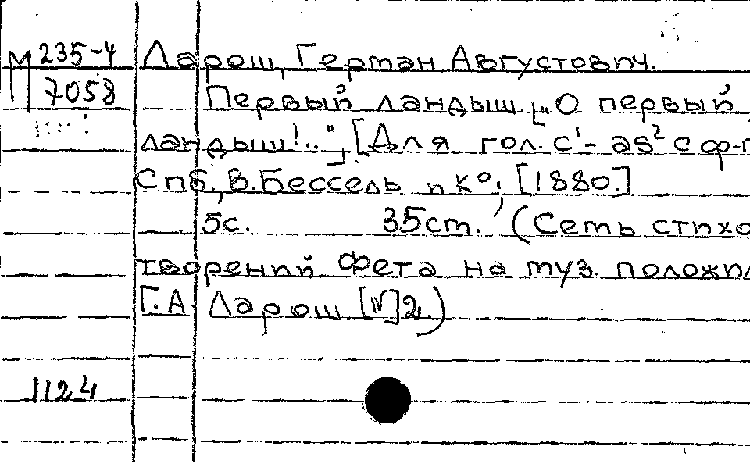 М 235-4 Ларош, Герман Августович.
7058 Первый ландыш. [„О первый
ландыш!.."] [Для гол. c¹- as² с ф-п
Спб., В. Бессель и Кº, [1880.]
5с. 35ст. (Семь стихо
творений Фета на муз. положил
Г.А. Ларош [№] 2)
1124